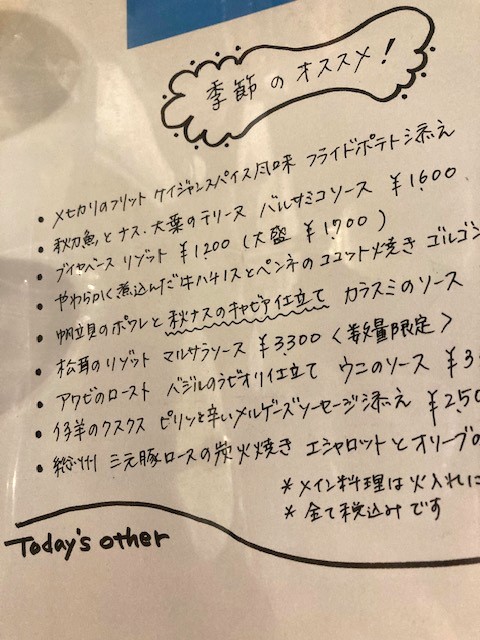 季節のオススメ！
・メヒカリのフリット ケイジャンスパイス風味 フライドポテト添え
・秋刀魚とナス、大葉のテリーヌ バルサミコソース ¥1,600
・ブイヤベースリゾット ¥1200 (大盛 ¥1,700)
・やわらかく煮込んだ牛ハチノスとペンネのココット焼き ゴルゴン
・帆立貝のポワレと秋ナスのキャビア仕立て カラスミのソース
・松茸のリゾット マルサラソース ¥3300 〈数量限定〉
・アワビのロースト バジルのラビオリ仕立て ウニのソース ¥3
・仔羊のクスクス ピリッと辛いメルゲーズソーセージ添え ¥250
・総州 三元豚ロースの炭火焼き エシャロットとオリーブの
＊メイン料理は火入れに
＊全て税込みです
Today's other